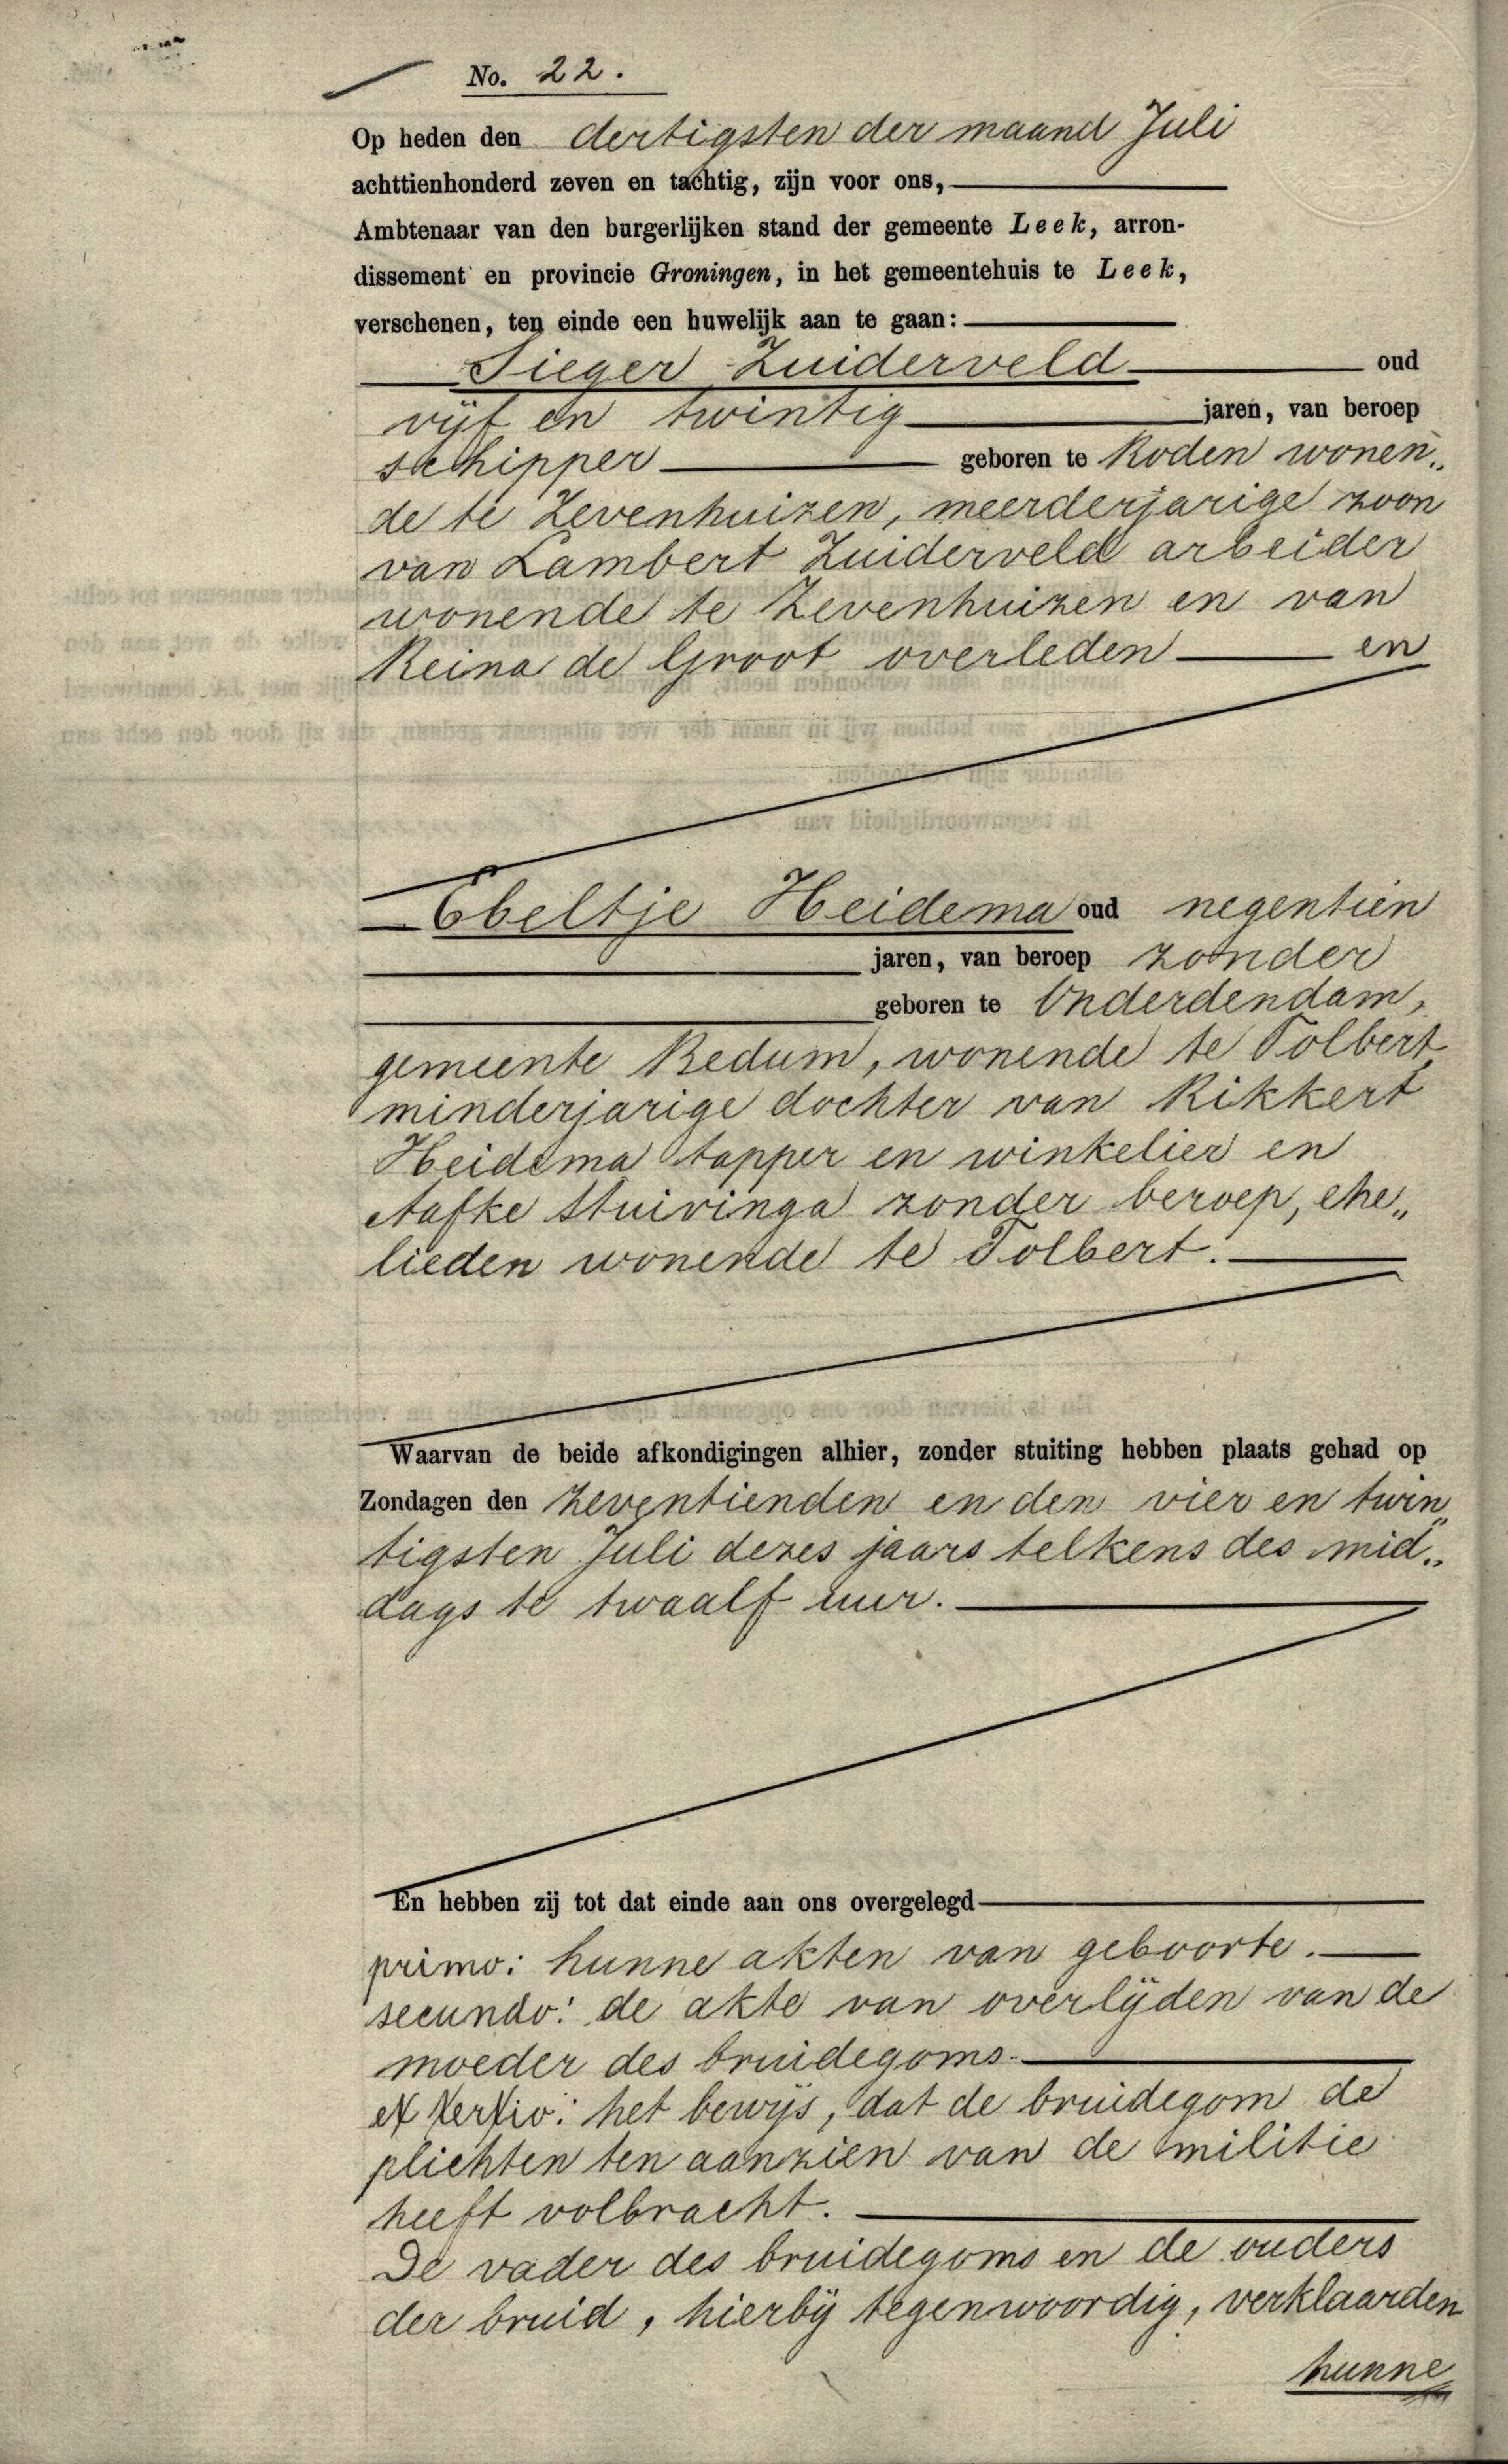 No. 22.
Op heden den dertigsten der maand Juli
achttienhonderd zeven en tachtig, zijn voor ons,
Ambtenaar van den burgerlijken stand der gemeente Leek, arron-
dissement en provincie Groningen, in het gemeentehuis te Leek,
verschenen, ten einde een huwelijk aan te gaan:
Sieger Zuiderveld oud
vijf en twintig jaren, van beroep
schipper geboren te Roden wonen„
de te Zevenhuizen, meerderjarige zoon
van Lambert Zuiderveld arbeider
wonende te Zevenhuizen en van
Reina de Groot overleden en
Ebeltje Heidema oud negentien
jaren, van beroep zonder
geboren te Onderdendam,
gemeente Bedum, wonende te Tolbert,
minderjarige dochter van Rikkert
Heidema tapper en winkelier en
Aafke Stuivinga zonder beroep, ehe„
lieden wonende te Tolbert.
Waarvan de beide afkondigingen alhier, zonder stuiting hebben plaats gehad op
Zondagen den zeventienden en den vier en twin„
tigsten Juli dezes jaars telkens des mid„
dags te twaalf uur.
En hebben zij tot dat einde aan ons overgelegd
primo: hunne akten van geboorte.
secundo: de akte van overlijden van de
moeder des bruidegoms.
et tertio: het bewijs, dat de bruidegom de
plichten ten aanzien van de militie
heeft volbracht.
De vader des bruidegoms en de ouders
der bruid, hierbij tegenwoordig, verklaarden
hunne